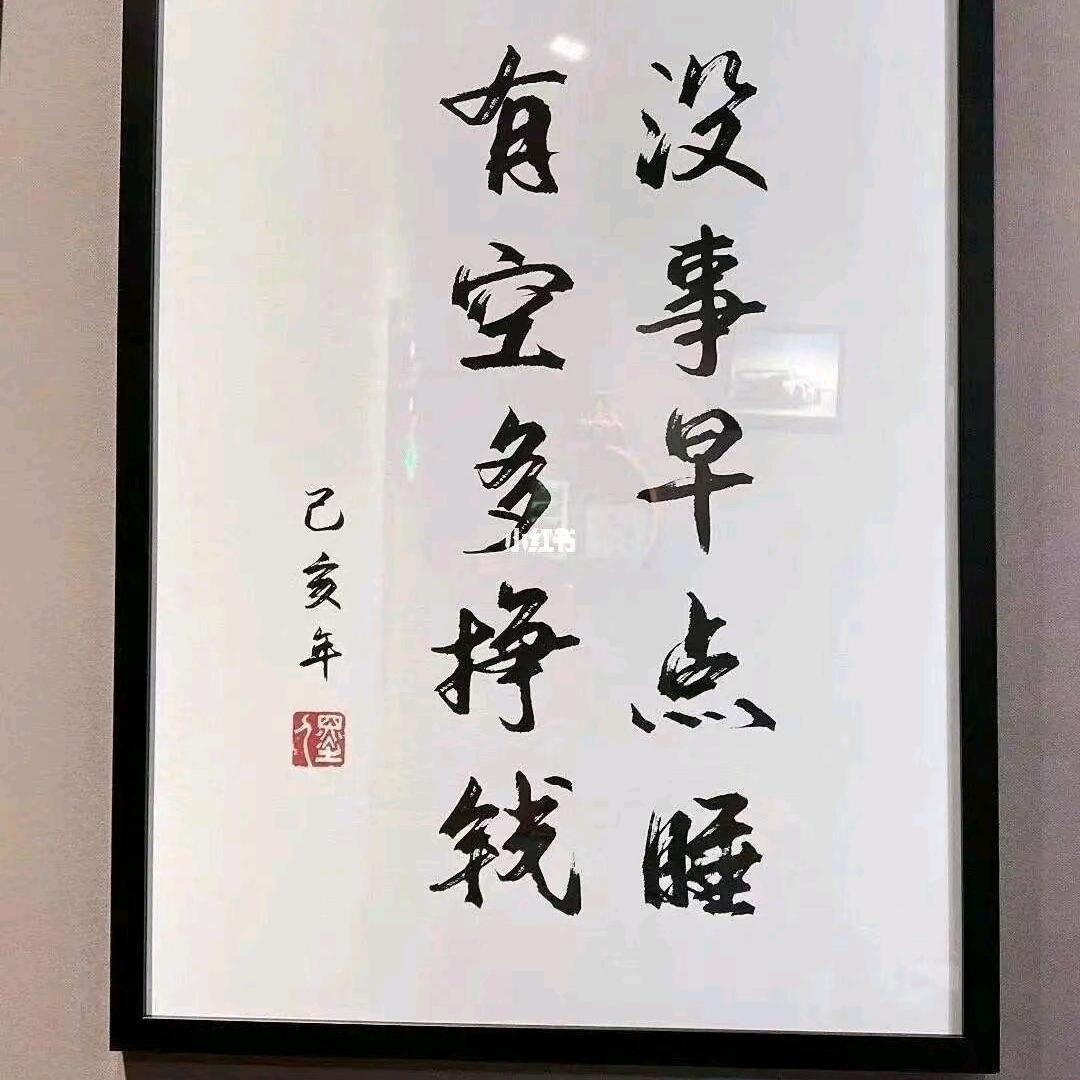 没事早点睡
有空多挣钱
己亥年
小红书